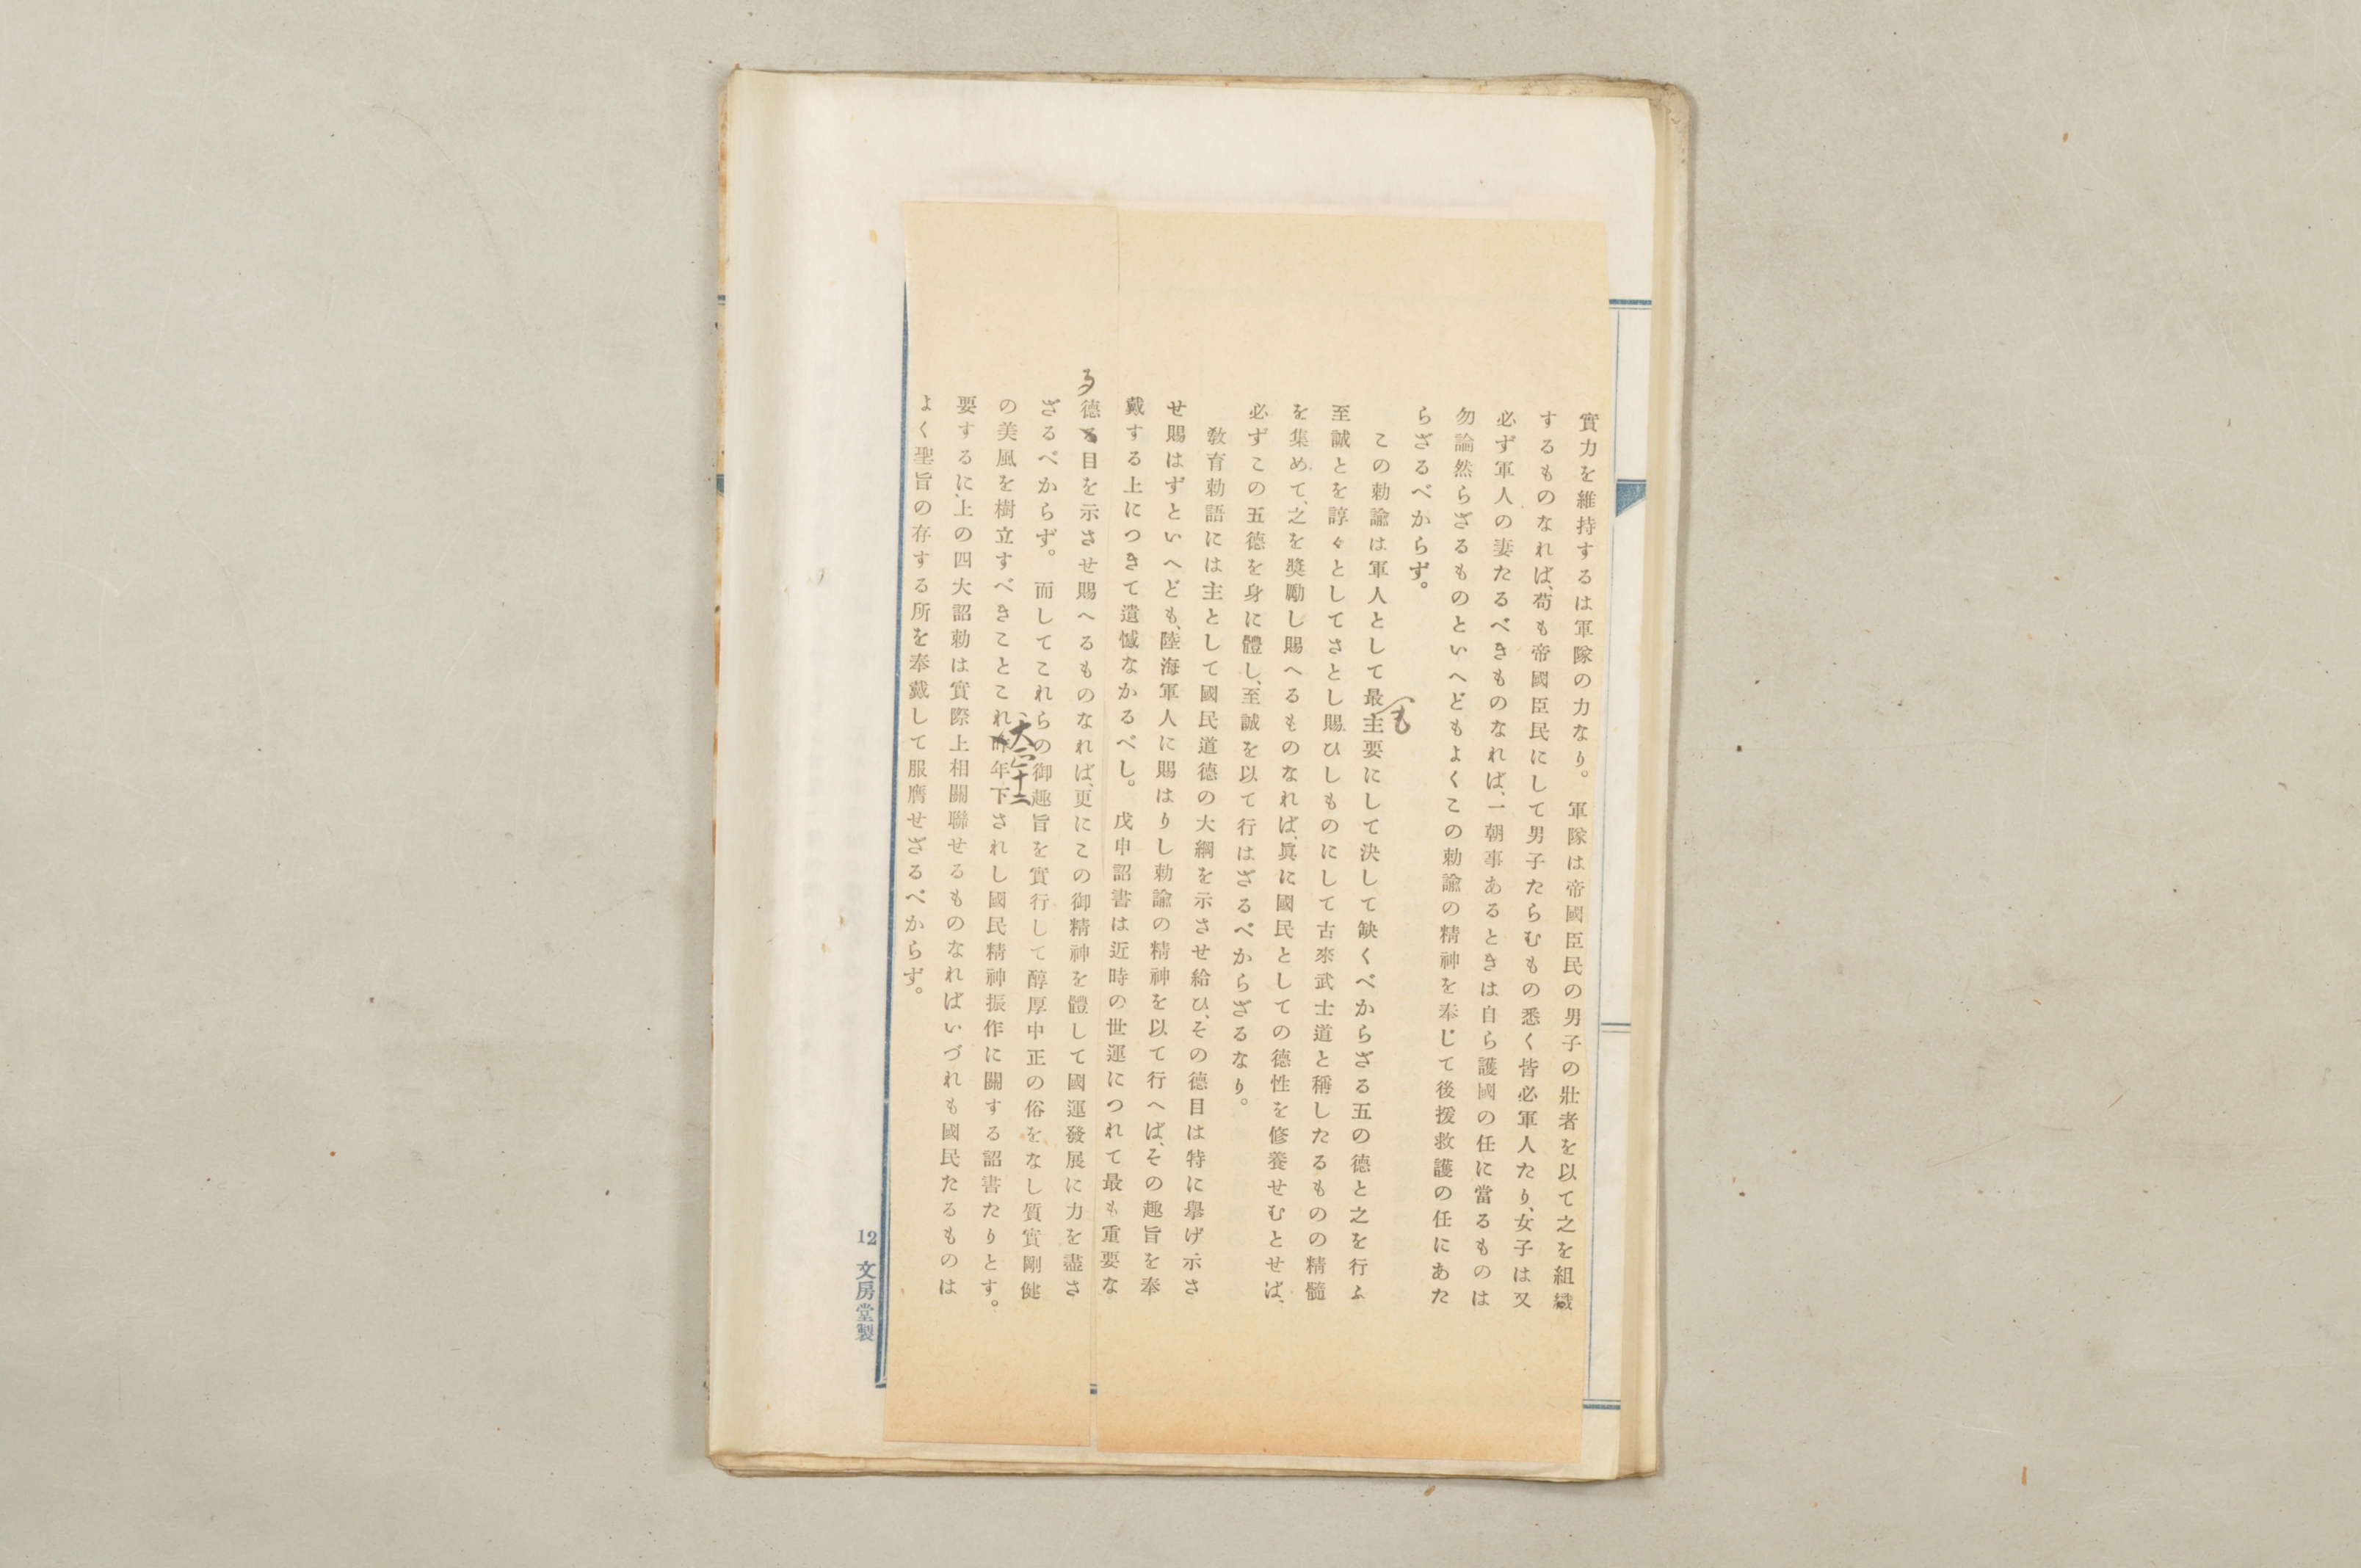 實力を維持するは軍隊の力なり。軍隊は帝國臣民の男子の壯者を以て之を組織
するものなれば、苟も帝國臣民にして男子たらむもの悉く皆必軍人たり、女子は又
必ず軍人の妻たるべきものなれば、一朝事あるときは自ら護國の任に當るものは
勿論然らざるものといへどもよくこの勅諭の精神を奉じて後援救護の任にあた
らざるべからず。
この勅諭は軍人として最主要にして決して缺くべからざる五の德と之を行ふ
も
至誠とを諄々としてさとし賜ひしものにして古來武士道と稱したるものの精髓
を集めて、之を奬勵し賜へるものなれば、眞に國民としての德性を修養せむとせば、
必ずこの五德を身に體し、至誠を以て行はざるべからざるなり。
敎育勅語には主として國民道德の大綱を示させ給ひ、その德目は特に擧げ示さ
せ賜はずといへども、陸海軍人に賜はりし勅諭の精神を以て行へば、その趣旨を奉
戴する上につきて遺憾なかるべし。戊申詔書は近時の世運につれて最も重要な
る
德る目を示させ賜へるものなれば、更にこの御精神を體して國運發展に力を盡さ
ざるべからず。而してこれらの御趣旨を實行して醇厚中正の俗をなし質實剛健
大正十二
の美風を樹立すべきことこれ昨年下されし國民精神振作に關する詔書たりとす。
要するに、上の四大詔勅は實際上相關聯せるものなればいづれも國民たるものは
よく聖旨の存する所を奉戴して服膺せざるべからず。
12 文房堂製